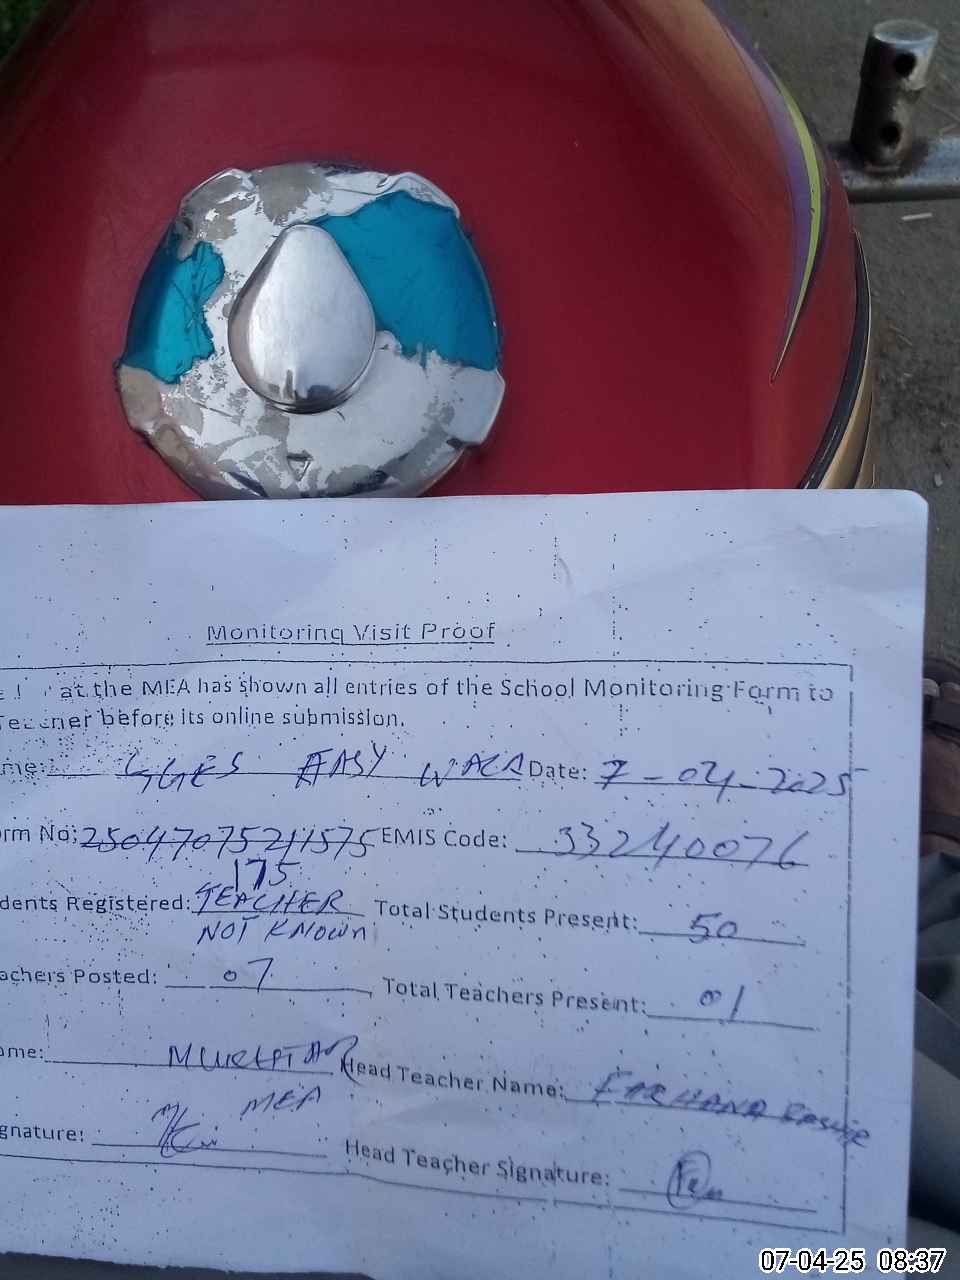 Monitoring Visit Proof
at the MEA has shown all entries of the School Monitoring Form to
before its online submission.
me: GGES Date: 7-04-2025
rm No: 25047075211575 EMIS Code: 33240076
175
dents Registered: TEACHER Total Students Present: 50
NOT KNOWN
achers Posted: 07 Total Teachers Present: 01
ome: Head Teacher Name: FARHANA
MEA
gnature: Head Teacher Signature:
07-04-25 08:37